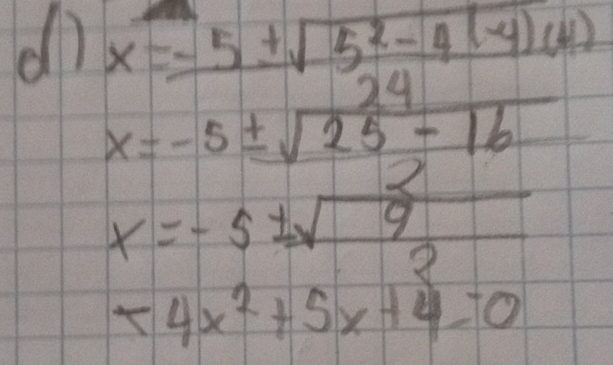 d) x = -5 ± √5² - 4(-4)(4)
24
x = -5 ± √25 - 16
2
x = -5 ± √9
2
- 4x² + 5x + 4 = 0